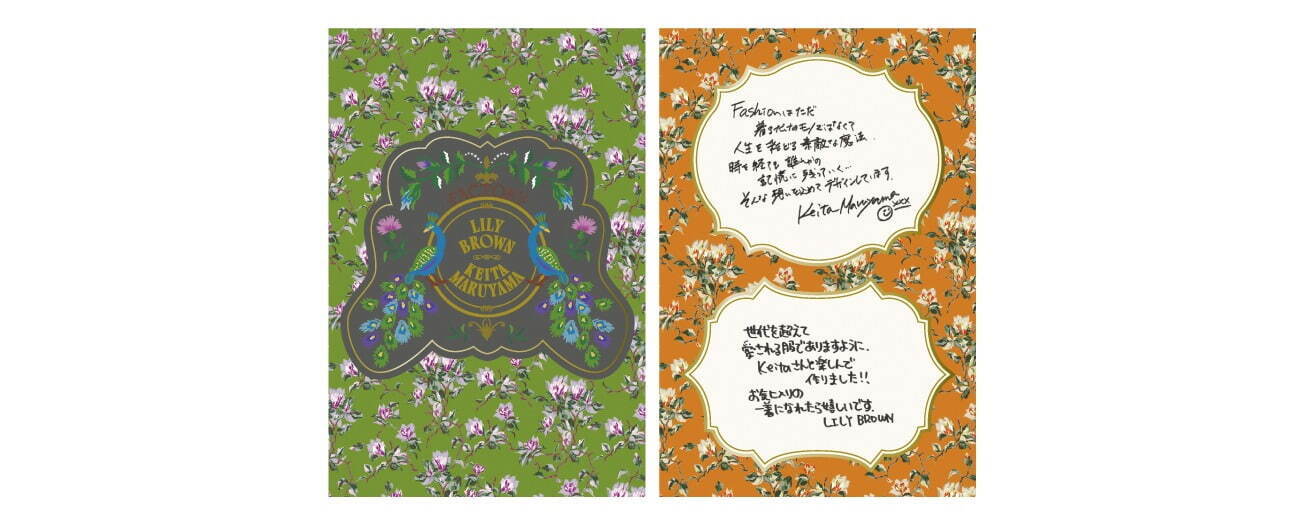 LILY
BROWN
KEITA
MARUYAMA
Fashionはただ
着るだけのモノではなくて
人生を彩どる素敵な魔法.
時を経ても誰かの
記憶に残っていく…
そんな想いを込めてデザインしています.
Keita Maruyama
xxx
世代を超えて
愛される服でありますように.
Keitaさんと楽しんで
作りました!!
お気に入りの
一着になれたら嬉しいです.
LILY BROWN